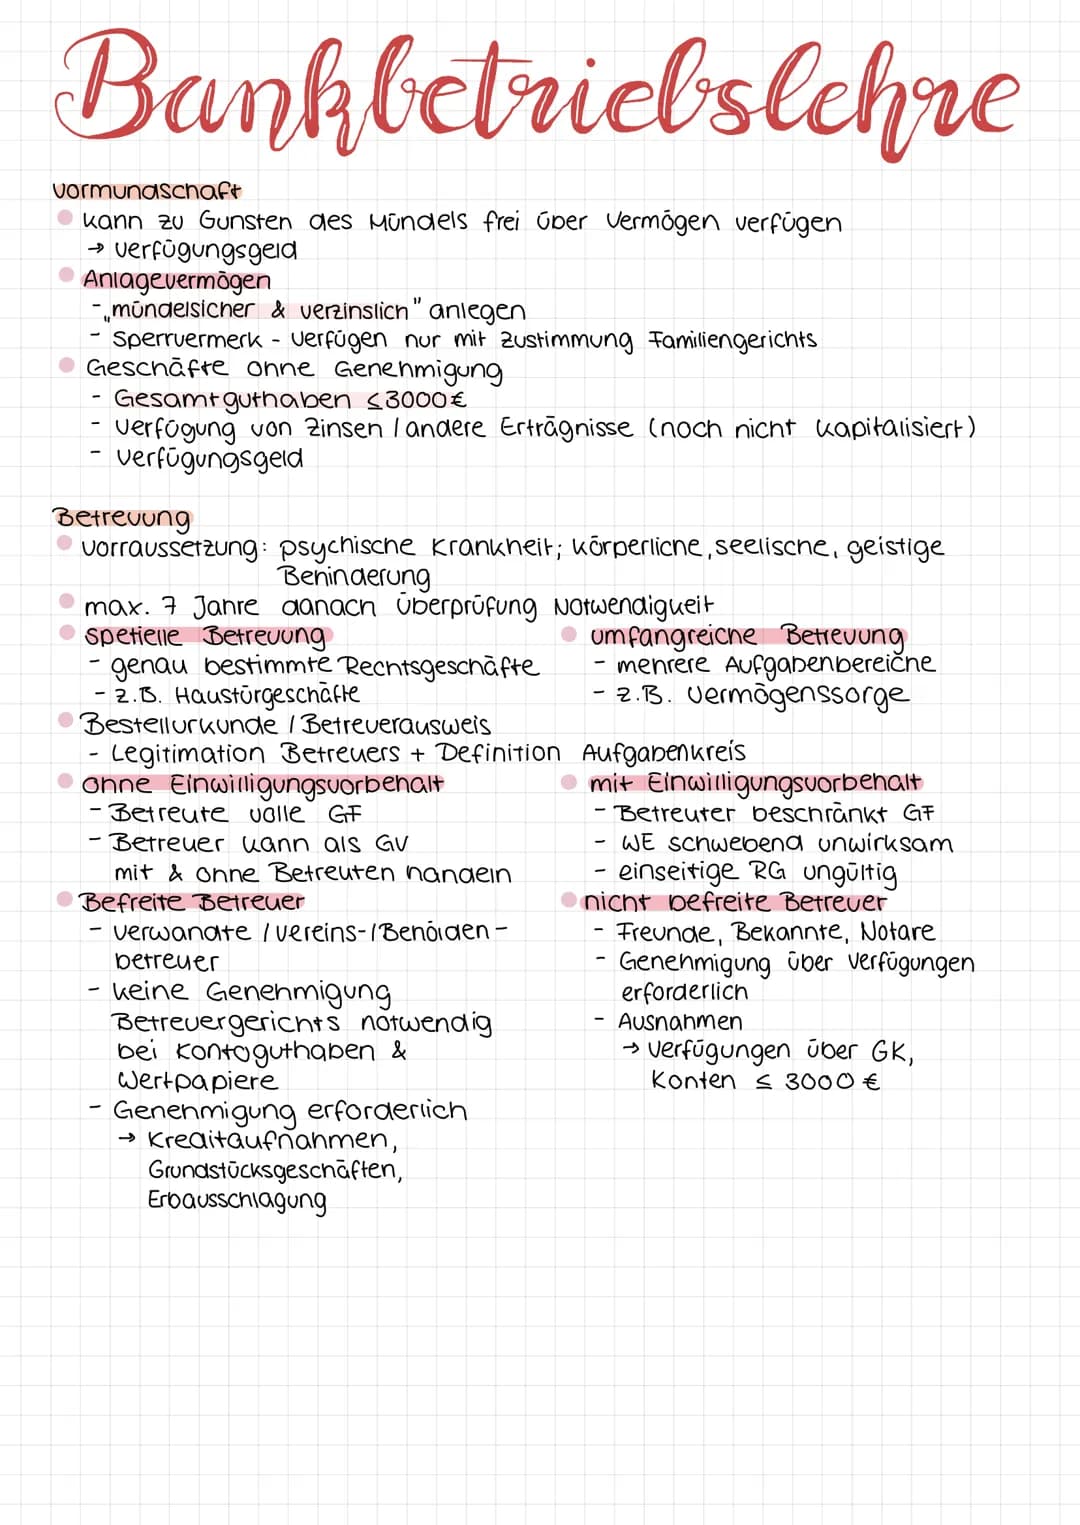 Bankbetriebslehre
Vormundschaft
kann zu Gunsten des Mündels frei über Vermögen verfügen
→ Verfügungsgeld
Anlagevermögen
- „mündelsicher & verzinslich" anlegen
- "Sperrvermerk - Verfügen nur mit Zustimmung Familiengerichts
Geschäfte ohne Genehmigung
- Gesamtguthaben ≤3000€
- Verfügung von Zinsen / andere Erträgnisse (noch nicht kapitalisiert)
- Verfügungsgeld
Betreuung
Vorraussetzung: psychische Krankheit; körperliche, seelische, geistige
Behinderung
max. 7 Jahre danach Überprüfung Notwendigkeit
spetielle Betreuung
- genau bestimmte Rechtsgeschäfte
- z.B. Haustürgeschäfte
umfangreiche Betreuung
- mehrere Aufgabenbereiche
- z.B. Vermögenssorge
Bestellurkunde / Betreuerausweis
- Legitimation Betreuers + Definition Aufgabenkreis
ohne Einwilligungsvorbehalt
- Betreute volle GF
- Betreuer kann als GV
mit & ohne Betreuten handeln
mit Einwilligungsvorbehalt
- Betreuter beschränkt GF
- WE schwebend unwirksam
- einseitige RG ungültig
Befreite Betreuer
- Verwandte / Vereins- / Behörden-
betreuer
- keine Genehmigung
Betreuergerichts notwendig
bei Kontoguthaben &
Wertpapiere
- Genehmigung erforderlich
→ Kreditaufnahmen,
Grundstücksgeschäften,
Erbausschlagung
nicht befreite Betreuer
- Freunde, Bekannte, Notare
- Genehmigung über Verfügungen
erforderlich
- Ausnahmen
→ Verfügungen über GK,
Konten ≤ 3000 €